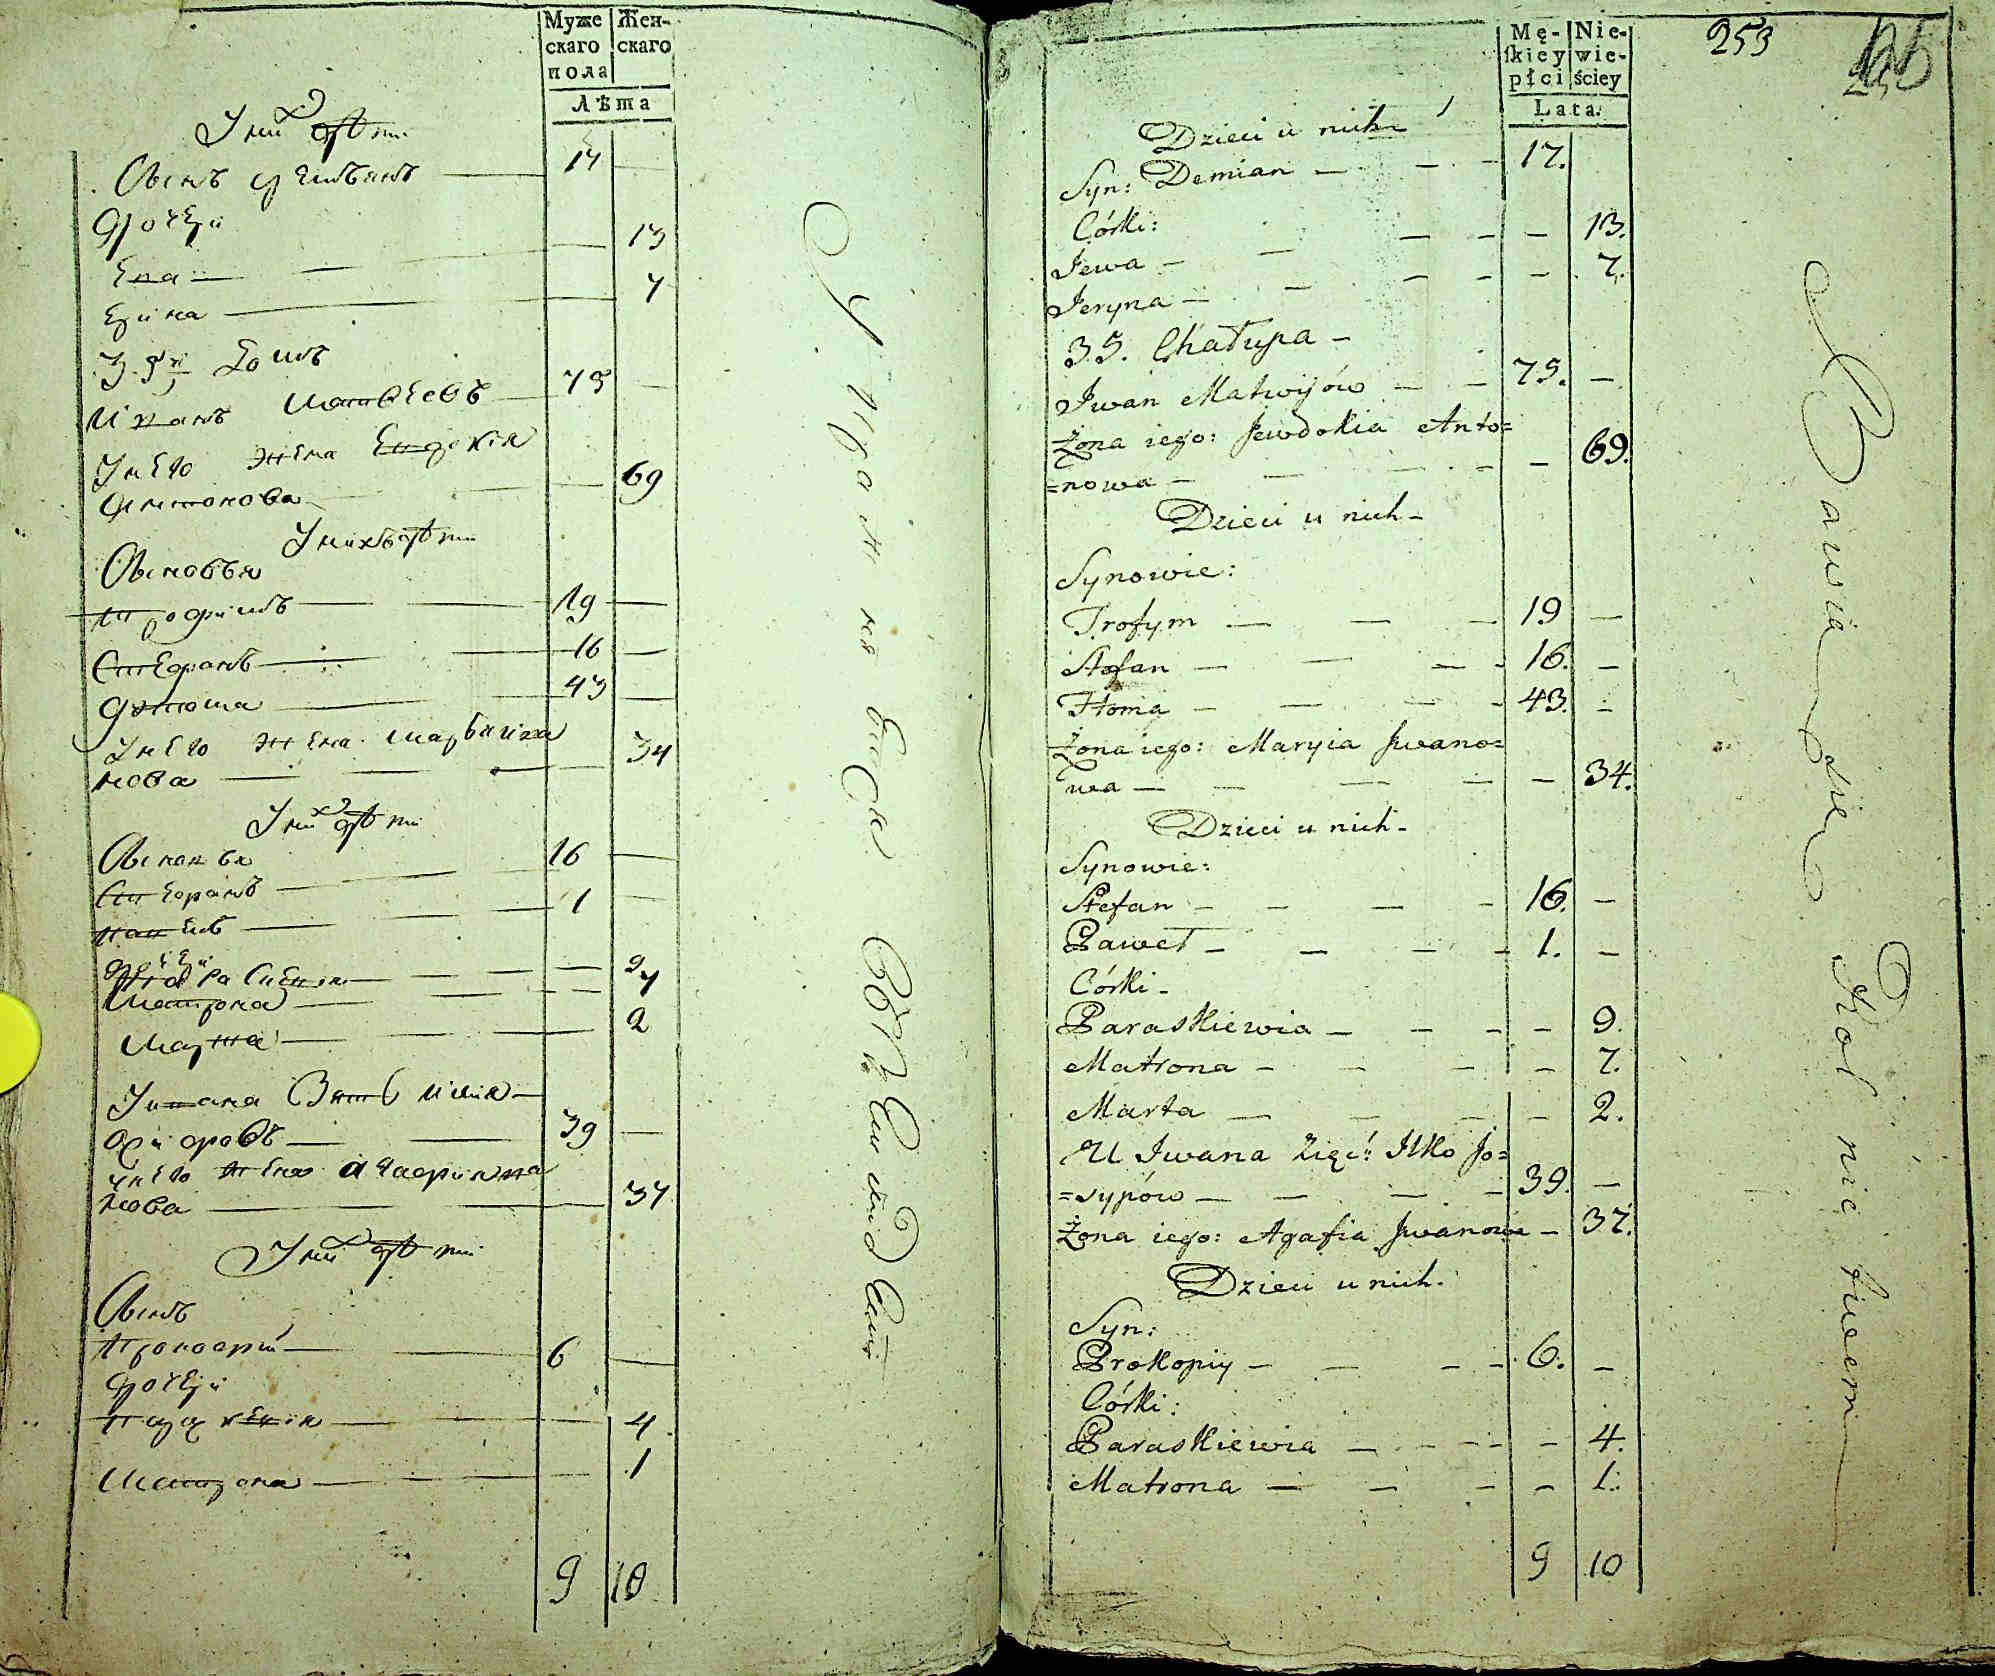 Муже
скаго
пола
Жен-
скаго
Лѣта
У них дѣти
Сынъ Демьянъ — 17 —
Дочери
Ева — — 13
Ерина — 7
35й Домъ
Иванъ Матвѣевъ — 75 —
У него жена Евдокія
Антонова — — 69
У нихъ дѣти
Сыновья
Трофимъ — — 19 —
Стефанъ — — 16 —
Хтома — — 43 —
У него жена Марья Ива
нова — — — 34
У них дѣти
Сыновья
Стефанъ — 16 —
Павелъ — — 1 —
Дочери
Матрона — — 7
Марта — — 2
У Ивана Зять
— — 39 —
У него жена Агафия Ива
нова — — 37
У них дѣти
Сынъ
Прокофий — — 6 —
Дочери
Параскевія — — 4
Матрона — — 1
9 10
Mę-
skiey
płci
Nie-
wie-
ściey
Lata.
253
Dzieci u nich
Syn: Demian — - - 17.
Córki:
Jewa - - - - - 13.
Jeryna - - - - - 7.
35. Chałupa -
Iwan Matwijów - - 75. -
Żona iego: Jewdokia Anto=
=nowa - - - - - 69.
Dzieci u nich -
Synowie:
Trofym — — - 19 —
Stefan — — - - 16. -
Htoma - - - - 43. -
Żona iego: Maryia Iwano=
wa — - - - - 34.
Dzieci u nich -
Synowie:
Stefan - - - - 16. -
Paweł - - - - 1. -
Córki -
Paraskiewia - - - - 9.
Matrona - - - - 7.
Marta — - - - 2.
U Iwana Zięć: Ilko Jo=
=sypów — - - - 39. -
Żona iego: Agafia Iwanowa - 37.
Dzieci u nich.
Syn:
Prokopiy - - - - 6. -
Córki:
Paraskiewia — - - - - 4.
Matrona — - - - 1.
9 10
Bawią się Rolnictwem